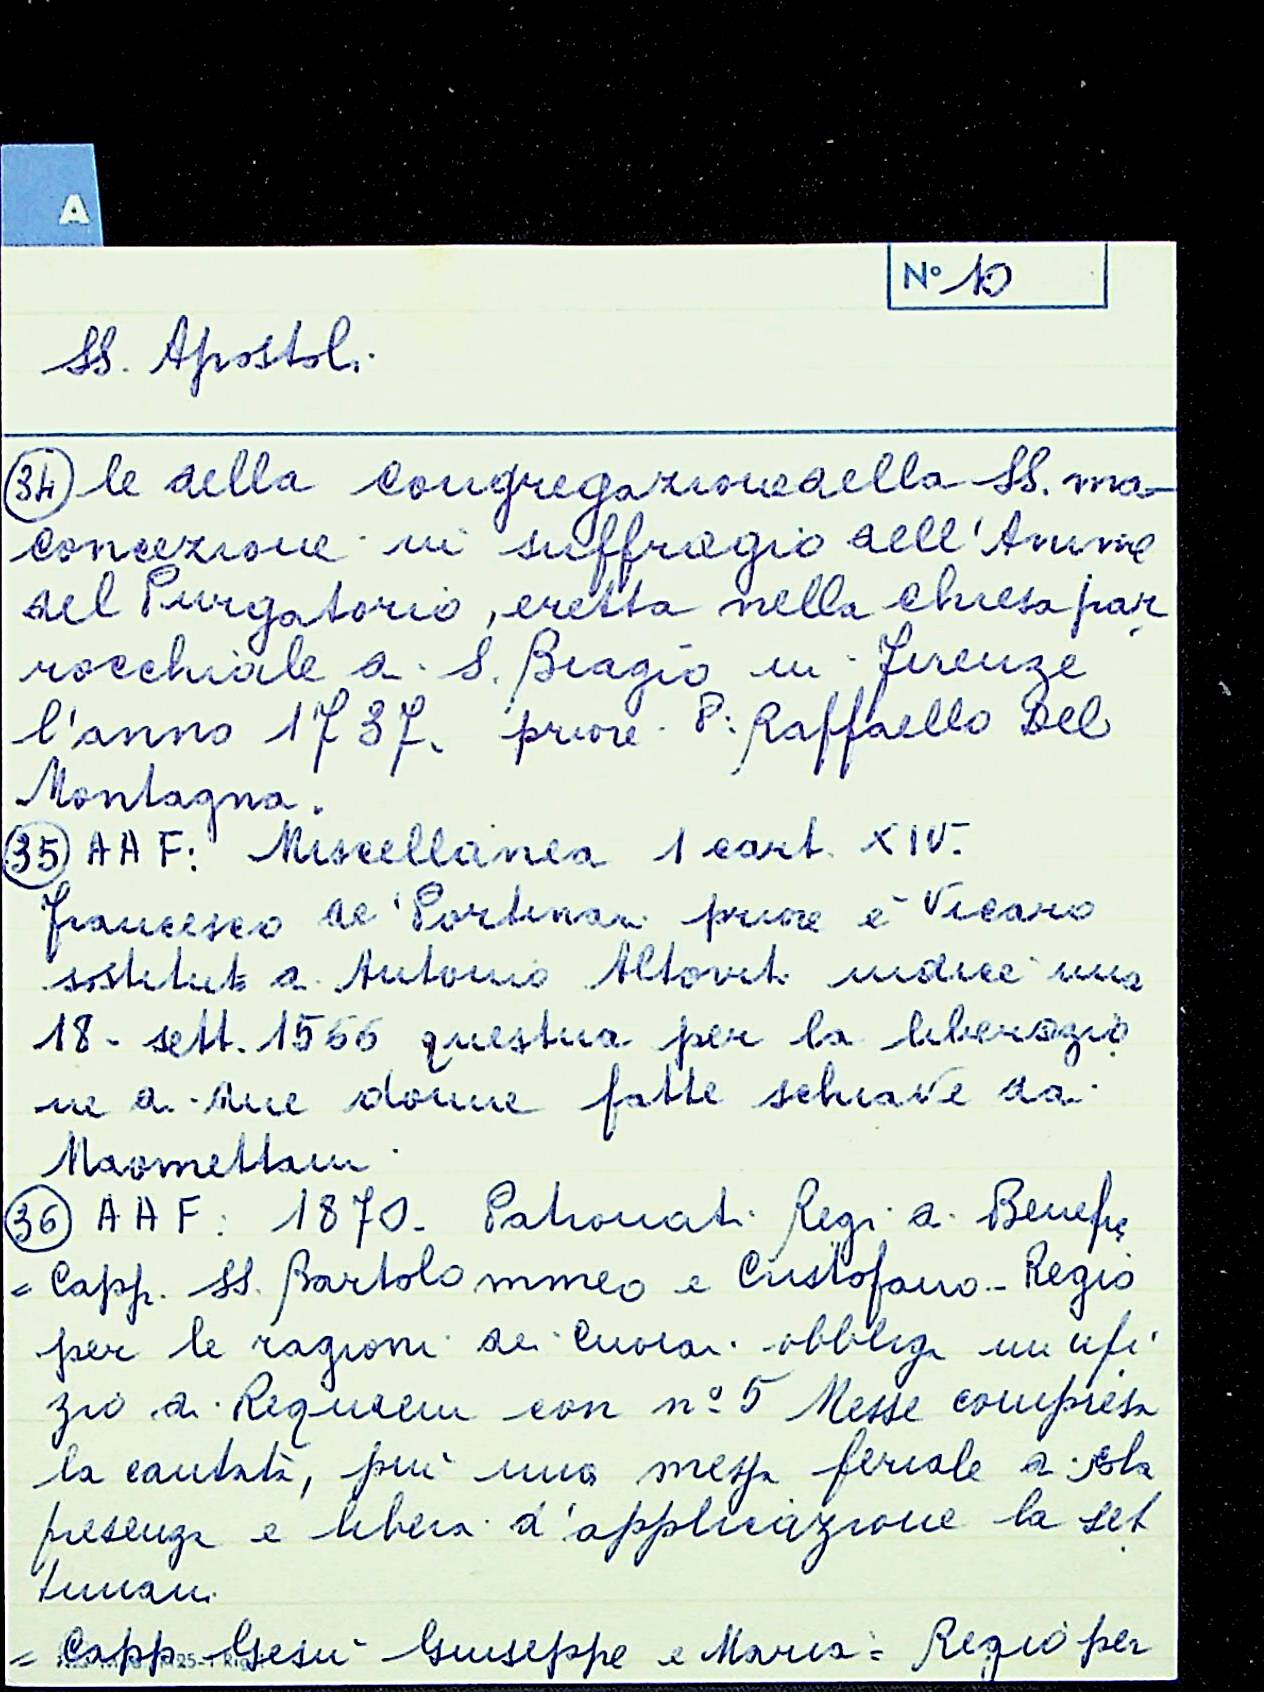 A
N° 10
SS. Apostoli
34 le della Congregazione della SS. ma
Concezione in suffragio dell'Anime
del Purgatorio, eretta nella chiesa par
rocchiale di S. Biagio in Firenze
l'anno 1737. priore P: Raffaello Del
Montagna.
35 AAF: Miscellanea 1 cart. XIV.
Francesco de' Portinari priore e Vicario
sostituto di Antonio Altoviti indice una
18 - sett. 1566 questua per la liberazio
ne di due donne fatte schiave dai
Maomettani.
36 AAF: 1870. Patronati Regi di Benefi
= Capp. SS. Bartolommeo e Cristofano - Regio
per le ragioni dei Cuoiai. obblig un ufi
zio di Requiem con n° 5 Messe compresa
la cantata, più una messa feriale di sola
presenza e libera d'applicazione la set
timana.
= Capp Gesù Giuseppe e Maria = Regio per